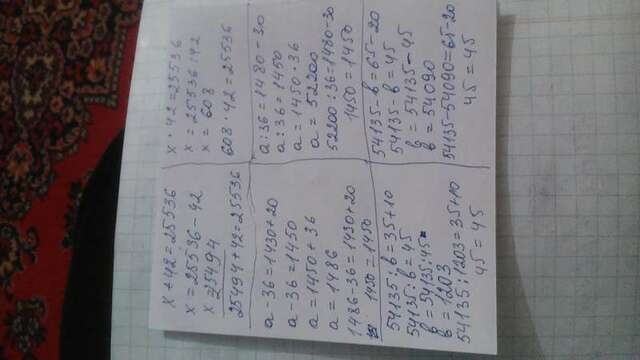 x + 42 = 25536
x = 25536 - 42
x = 25494
25494 + 42 = 25536
x · 42 = 25536
x = 25536 : 42
x = 608
608 · 42 = 25536
a - 36 = 1430 + 20
a - 36 = 1450
a = 1450 + 36
a = 1486
1486 - 36 = 1430 + 20
1450 = 1450
a : 36 = 1480 - 30
a : 36 = 1450
a = 1450 · 36
a = 52200
52200 : 36 = 1480 - 30
1450 = 1450
54135 : b = 35 + 10
54135 : b = 45
b = 54135 : 45
b = 1203
54135 : 1203 = 35 + 10
45 = 45
54135 - b = 65 - 20
54135 - b = 45
b = 54135 - 45
b = 54090
54135 - 54090 = 65 - 20
45 = 45